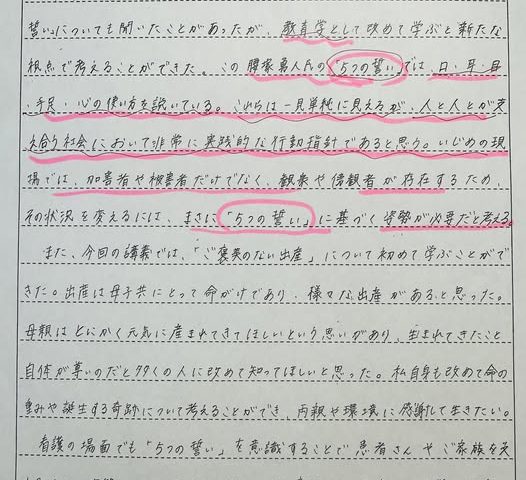 誓い」についても聞いたことがあったが、教育学として改めて学ぶと新たな
視点で考えることができた。この腰塚勇人氏の「5つの誓い」では、口・耳・目
・手足・心の使い方を説いている。これらは一見単純に見えるが、人と人とが支
え合う社会において非常に実践的な行動指針であると思う。いじめの現
場では、加害者や被害者だけでなく、観衆や傍観者が存在するため、
その状況を変えるには、まさに「5つの誓い」に基づく姿勢が必要だと考える。
また、今回の講義では、「ご褒美のない出産」について初めて学ぶことがで
きた。出産は母子共にとって命がけであり、様々な出産があると思った。
母親はとにかく元気に産まれてきてほしいという思いがあり、生まれてきたこと
自体が尊いのだと多くの人に改めて知ってほしいと思った。私自身も改めて命の
重みや誕生する奇跡について考えることができ、両親や環境に感謝して生きたい。
看護の場面でも「5つの誓い」を意識することで患者さんやご家族を支